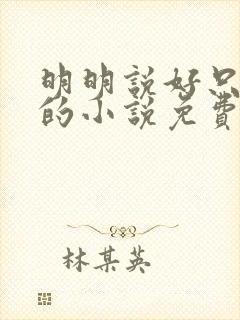 明明說好只
的小說免費
林某英